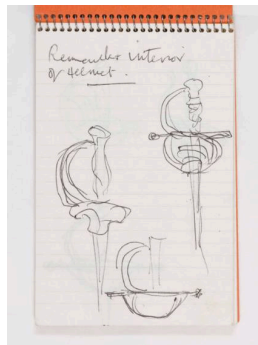 Remember interior
of Helmet.